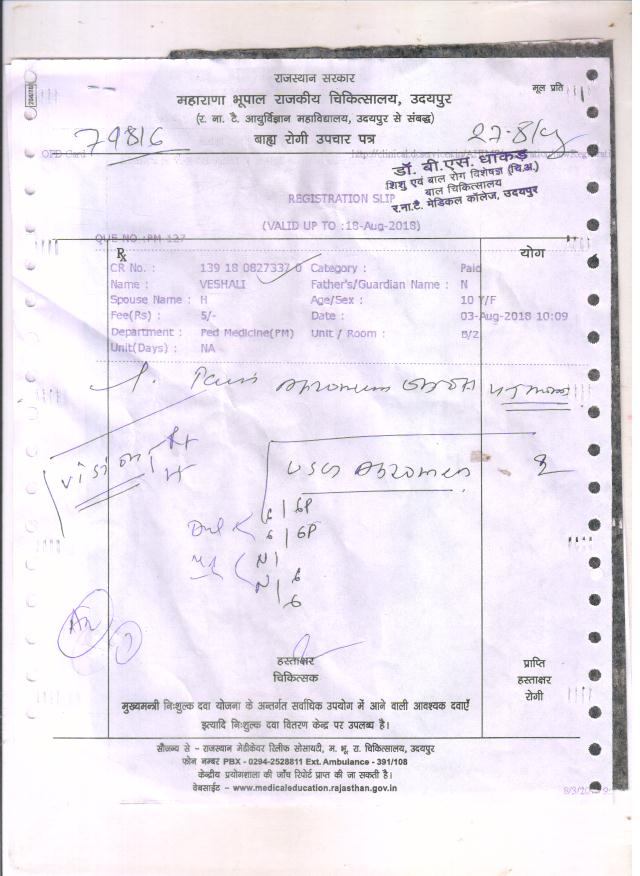 राजस्थान सरकार
मूल प्रति
महाराणा भूपाल राजकीय चिकित्सालय, उदयपुर
(र. ना. टै. आयुर्विज्ञान महाविद्यालय, उदयपुर से संबद्ध)
79816
बाह्य रोगी उपचार पत्र
OPD Card
डॉ. बी.एस. धाकड़
शिशु एवं बाल रोग विशेषज्ञ (चि.अ.)
बाल चिकित्सालय
र.ना.टै. मेडिकल कॉलेज, उदयपुर
REGISTRATION SLIP
(VALID UP TO :18-Aug-2018)
QUE NO :PM 127
℞
योग
CR No. : 139 18 0827337 0 Category : Paid
Name : VESHALI Father's/Guardian Name : N
Spouse Name : H Age/Sex : 10 Y/F
Fee(Rs) : 5/- Date : 03-Aug-2018 10:09
Department : Ped Medicine(PM) Unit / Room : B/2
Unit(Days) : NA
Pain
vision
6 | 6P
6 | 6P
N | 6
N | 6
हस्ताक्षर
चिकित्सक
प्राप्ति
हस्ताक्षर
रोगी
मुख्यमन्त्री निःशुल्क दवा योजना के अन्तर्गत सर्वाधिक उपयोग में आने वाली आवश्यक दवाएँ
इत्यादि निःशुल्क दवा वितरण केन्द्र पर उपलब्ध है।
सौजन्य से - राजस्थान मेडीकेयर रिलीफ सोसायटी, म. भू. रा. चिकित्सालय, उदयपुर
फोन नम्बर PBX - 0294-2528811 Ext. Ambulance - 391/108
केन्द्रीय प्रयोगशाला की जाँच रिपोर्ट प्राप्त की जा सकती है।
वेबसाईट - www.medicaleducation.rajasthan.gov.in